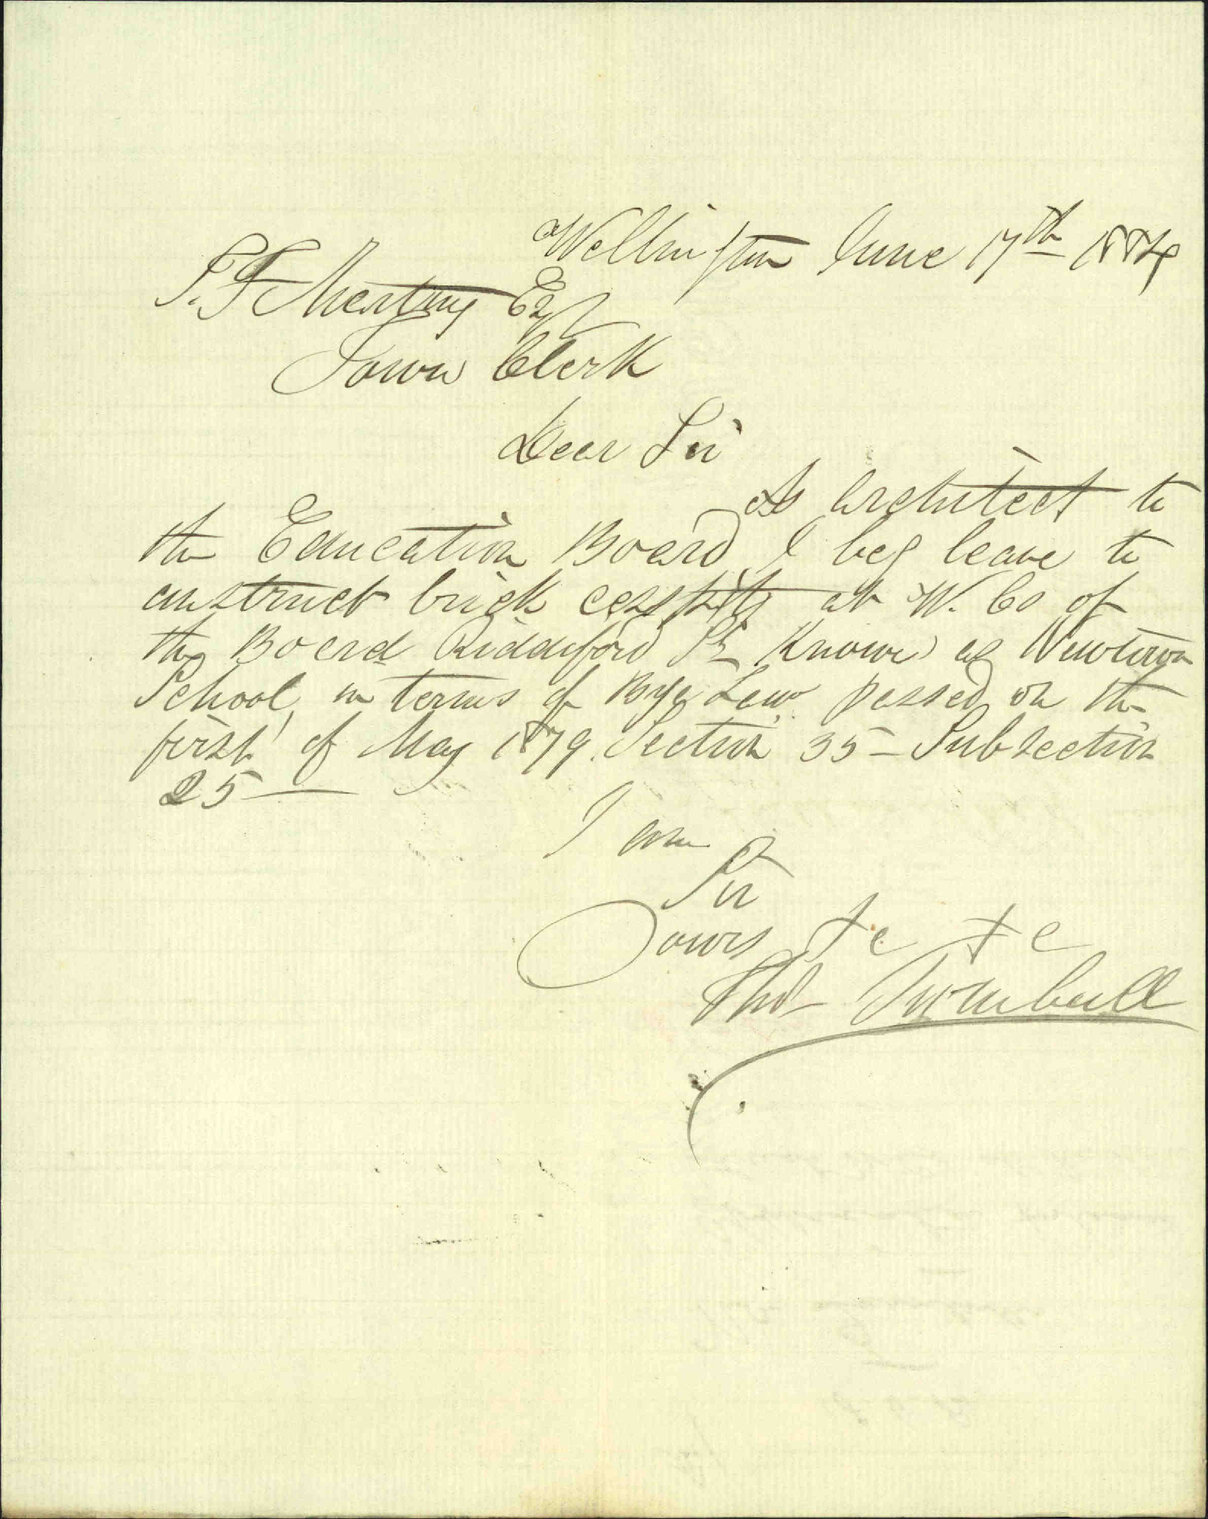 Wellington June 17th 1884
Esq
Town Clerk
Dear Sir
As Architect to
the Education Board I beg leave to
construct brick cesspits at W. Cs of
the Board Riddiford St known as Newtown
School, in terms of Bye Law passed on the
first of May 1879. Section 35 - Subsection
25 —
I am
Sir
Yours &c &c
Thos Turnbull